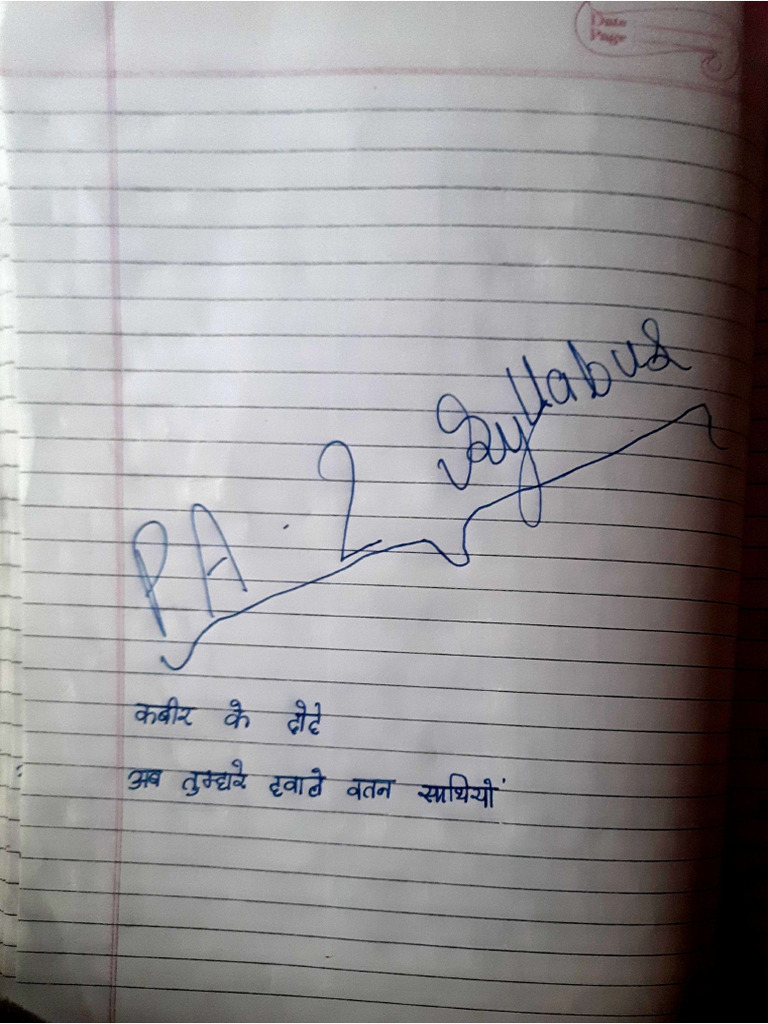 Date
Page
P.A. 2 Syllabus
कबीर के दोहे
अब तुम्हारे हवाले वतन साथियों